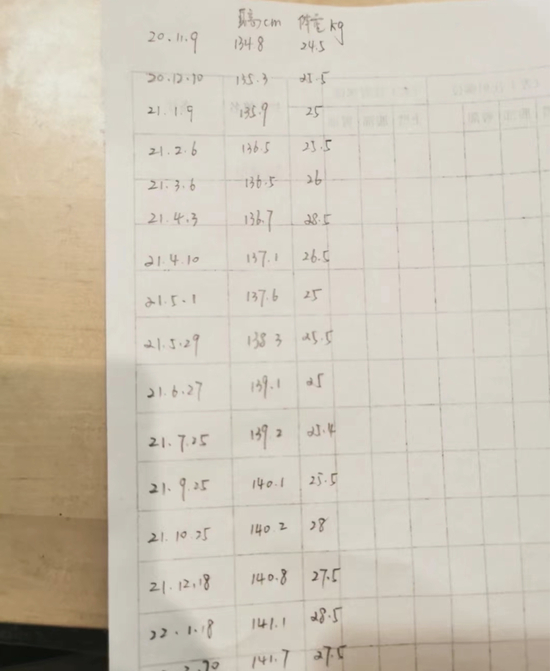 身高cm 体重kg
20.11.9 134.8 24.5
20.12.10 135.3 25.5
21.1.9 135.9 25
21.2.6 136.5 25.5
21.3.6 136.5 26
21.4.3 136.7 28.5
21.4.10 137.1 26.5
21.5.1 137.6 25
21.5.29 138.3 25.5
21.6.27 139.1 25
21.7.25 139.2 25.4
21.9.25 140.1 25.5
21.10.25 140.2 28
21.12.18 140.8 27.5
22.1.18 141.1 28.5
141.7 27.5